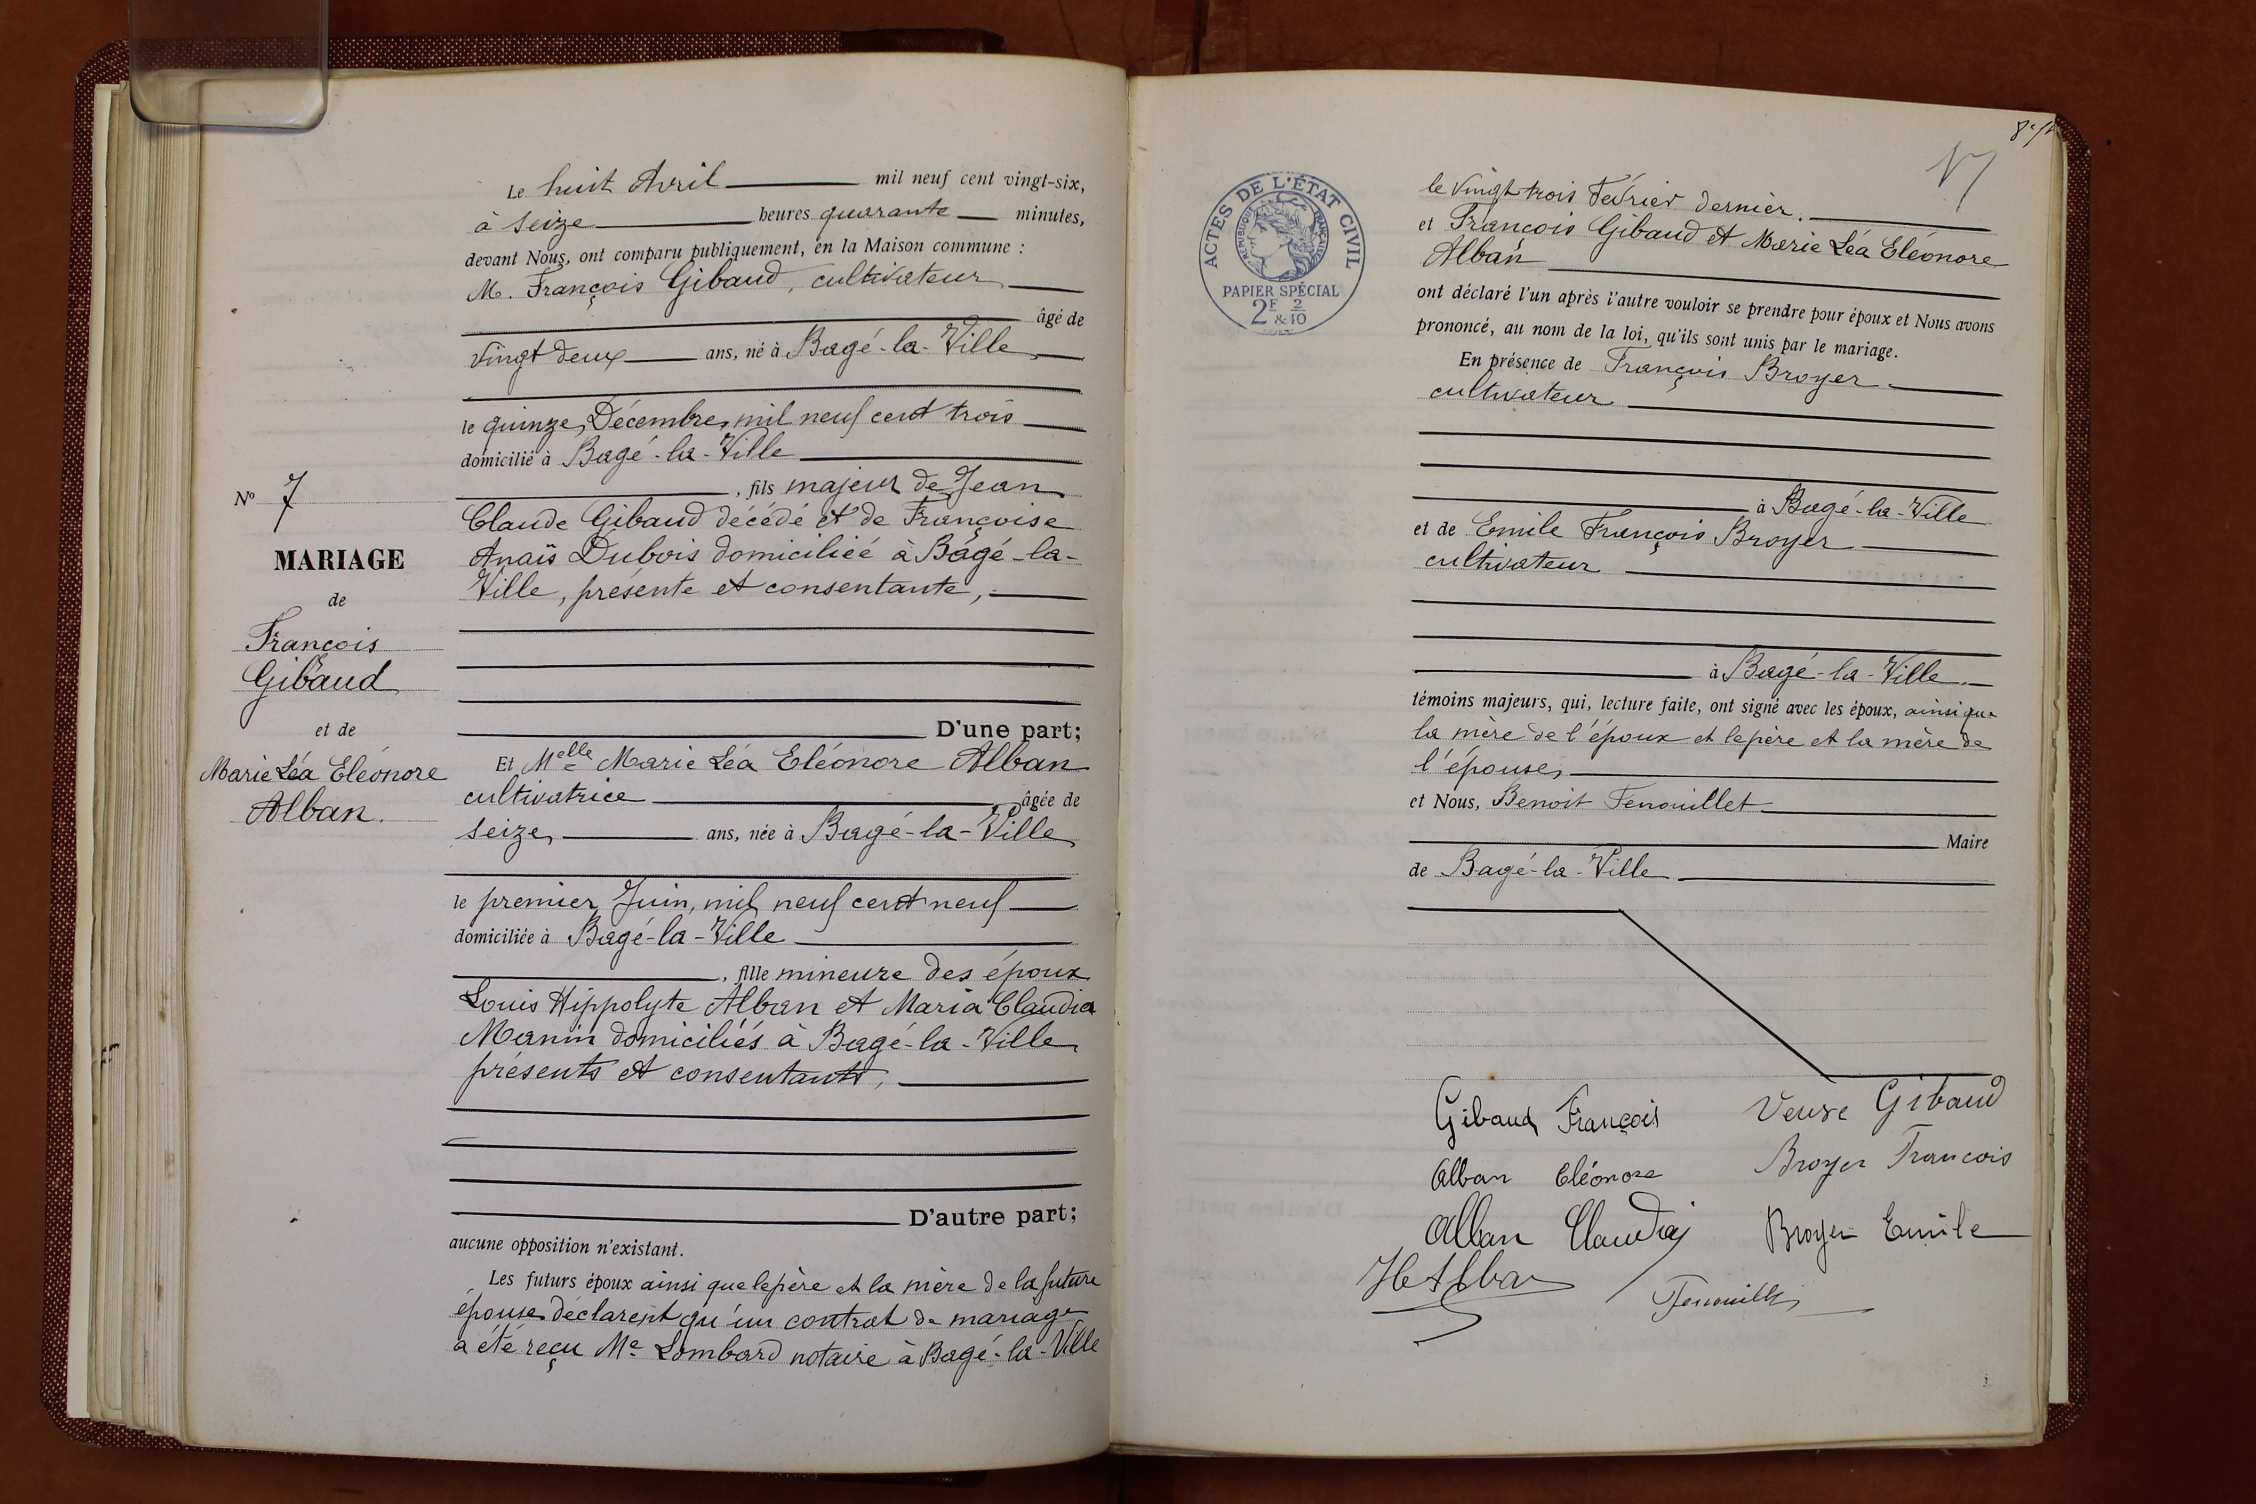 Le huit Avril mil neuf cent vingt-six,
à seize heures quarante minutes,
devant Nous, ont comparu publiquement, en la Maison commune :
M. François Gibaud, cultivateur
âgé de
vingt deux ans, né à Bagé-la-Ville
le quinze Décembre mil neuf cent trois
domicilié à Bagé-la-Ville
, fils majeur de Jean
Claude Gibaud décédé et de Françoise
Anaïs Dubois domiciliée à Bâgé-la-
Ville, présente et consentante,
D'une part;
Et Melle Marie Léa Eléonore Alban
cultivatrice âgée de
seize ans, née à Bagé-la-Ville
le premier Juin, mil neuf cent neuf
domiciliée à Bagé-la-Ville
, fille mineure des époux
Louis Hippolyte Alban et Maria Claudia
Manin domiciliés à Bagé-la-Ville
présents et consentants,
D'autre part;
aucune opposition n'existant.
Les futurs époux ainsi que le père et la mère de la future
épouse déclarent qu'un contrat de mariage
a été reçu Me Lombard notaire à Bagé-la-Ville
N° 7
MARIAGE
de
François
Gibaud
et de
Marie Léa Eléonore
Alban.
17
ACTES DE L'ÉTAT CIVIL
RÉPUBLIQUE FRANÇAISE
PAPIER SPÉCIAL
2F & 2/10
le vingt trois Février dernier.
et François Gibaud et Marie Léa Eléonore
Alban
ont déclaré l'un après l'autre vouloir se prendre pour époux et Nous avons
prononcé, au nom de la loi, qu'ils sont unis par le mariage.
En présence de François Broyer
cultivateur
à Bagé-la-Ville
et de Emile François Broyer
cultivateur
à Bagé-la-Ville
témoins majeurs, qui, lecture faite, ont signé avec les époux, ainsi que
la mère de l'époux et le père et la mère de
l'épouse,
et Nous, Benoit Fenouillet
Maire
de Bagé-la-Ville
Gibaud François Veuve Gibaud
Alban Eléonore Broyer Francois
Alban Claudia Broyer Emile
H Alban Fenouillet